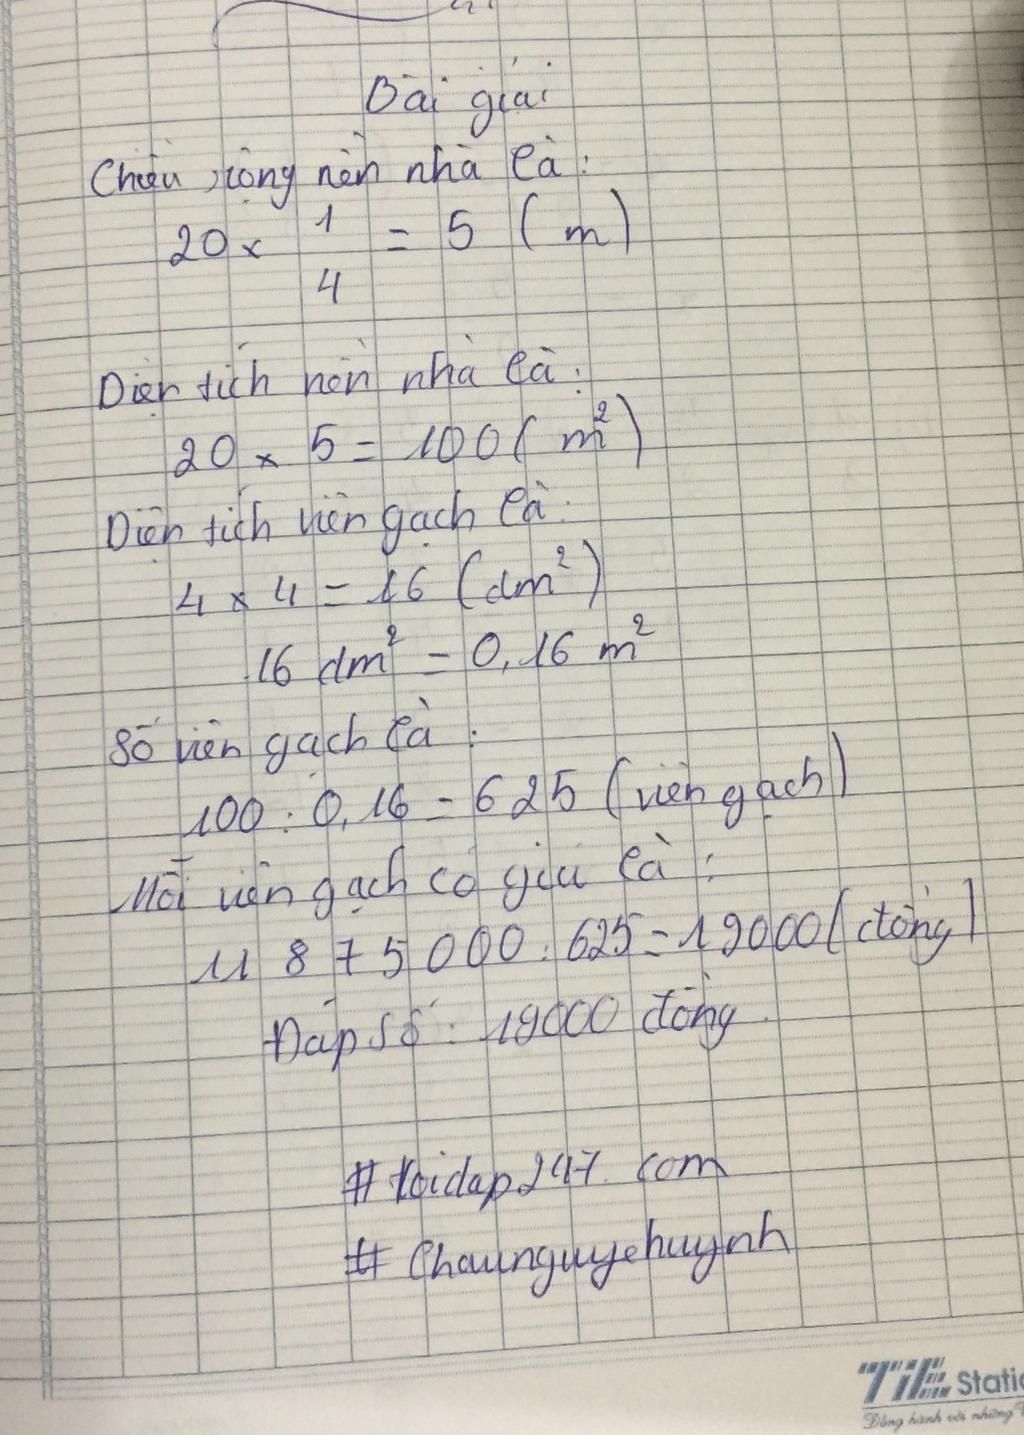 Bài giải
Chiều rộng nền nhà là:
20 × 1/4 = 5 (m)
Diện tích nền nhà là:
20 × 5 = 100 (m²)
Diện tích viên gạch là:
4 × 4 = 16 (dm²)
16 dm² = 0,16 m²
Số viên gạch là:
100 : 0,16 = 625 (viên gạch)
Mỗi viên gạch có giá là:
11 875 000 : 625 = 19000 (đồng)
Đáp số: 19000 đồng.
# loidap247.com
# Chaunguyehuynh
TiE Static
Đồng hành với những